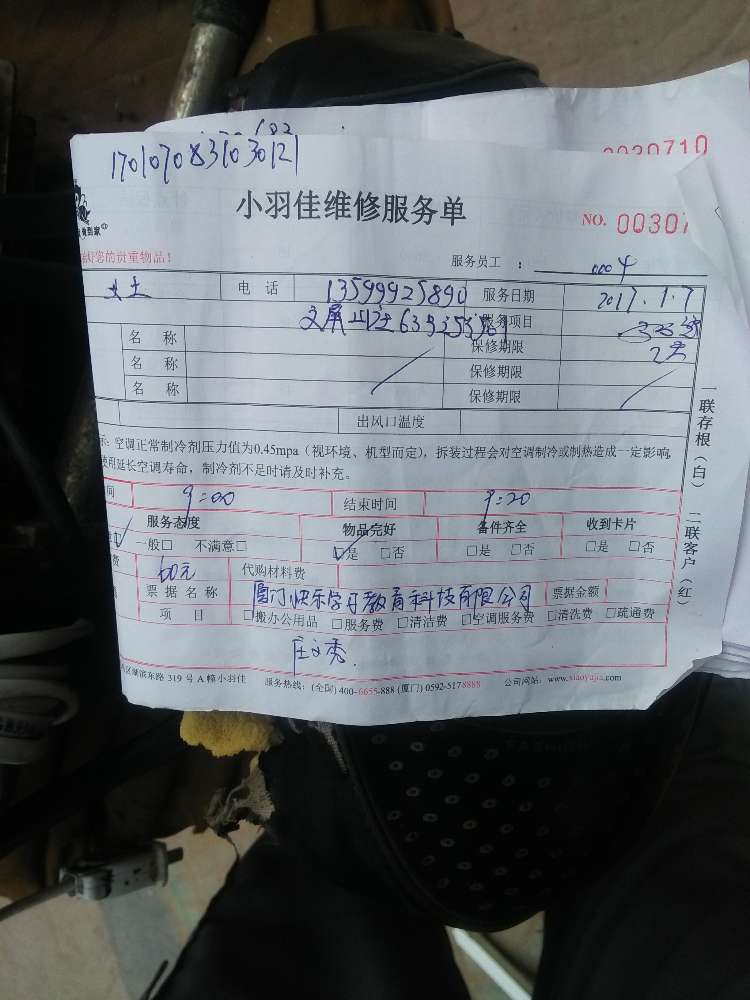 0030710
1701070831030121
小羽佳维修服务单
NO. 00307
您的贵重物品！
服务员工 ： 0004
女士 电 话 13599925890 服务日期 2017.1.7
服务项目
名 称 保修期限 2天
名 称 保修期限
名 称 保修期限
出风口温度
示: 空调正常制冷剂压力值为0.45mpa（视环境、机型而定），拆装过程会对空调制冷或制热造成一定影响,
使用延长空调寿命，制冷剂不足时请及时补充。
间 9:00 结束时间 9:20
服务态度 物品完好 备件齐全 收到卡片
一般□ 不满意□ ☑是 □否 □是 □否 □是 □否
费 60元 代购材料费
票 据 名 称 厦门快乐学习教育科技有限公司 票据金额
项 目 □搬办公用品 □服务费 □清洁费 □空调服务费 □清洗费 □疏通费
区湖滨东路 319 号 A 幢小羽佳 服务热线: (全国) 400-6655-888 (厦门) 0592-5178888 公司网站: www.xiaoyujia.com
一联存根（白） 二联客户（红）